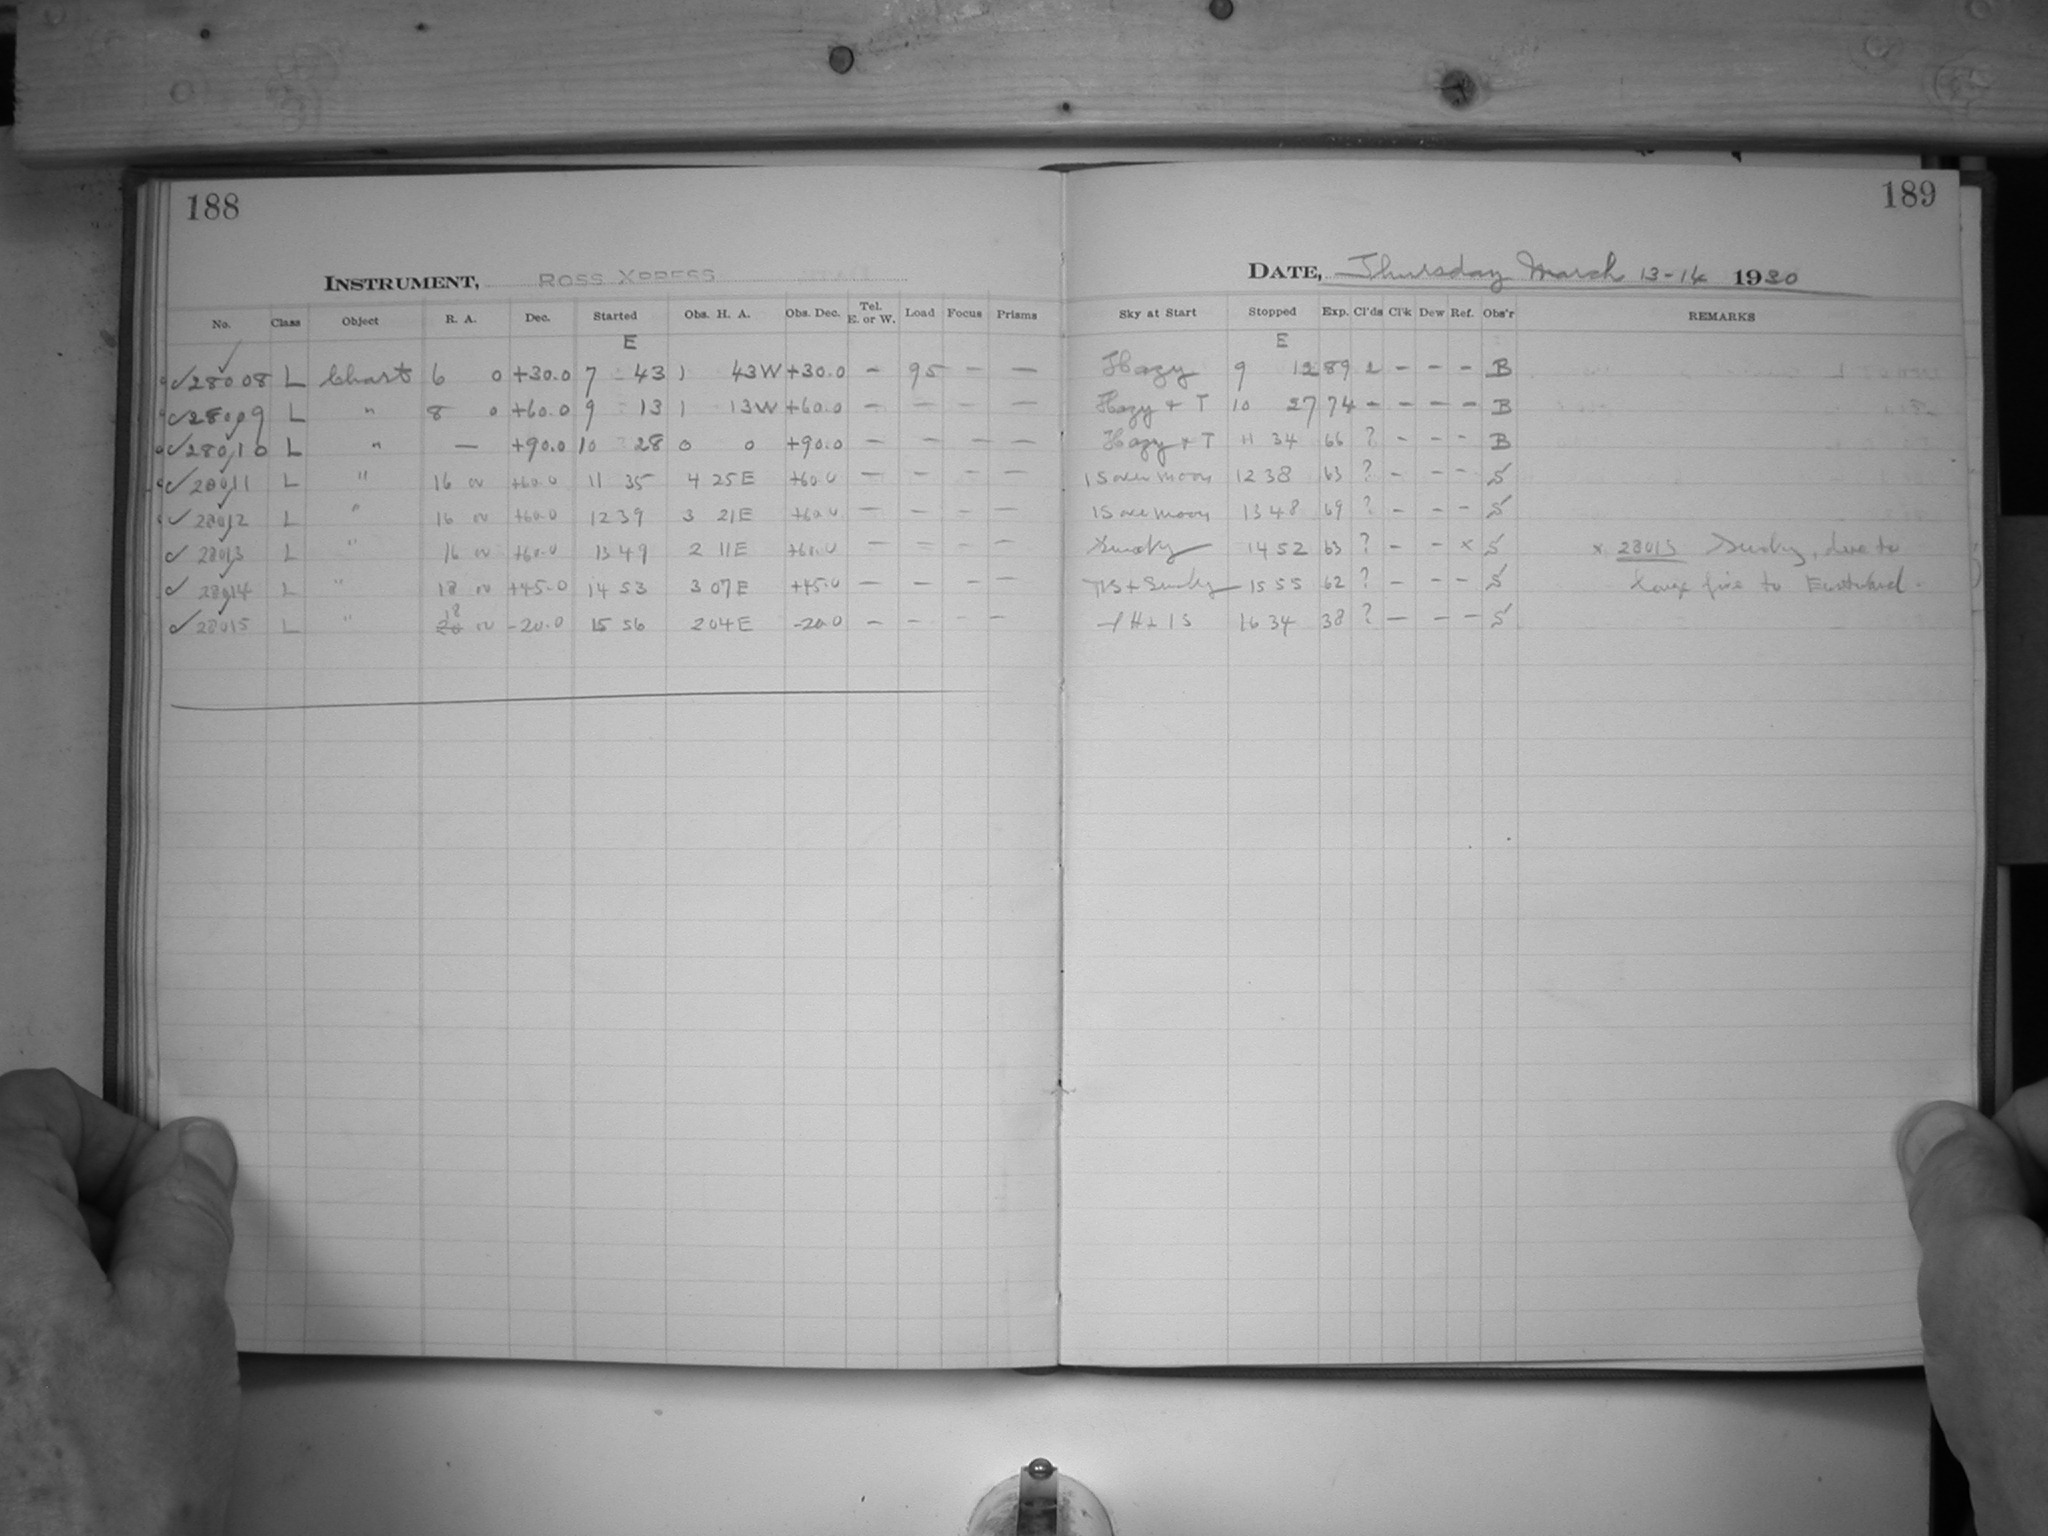 188
189
INSTRUMENT, ROSS XPRESS
DATE, Thursday March 13-14 1930
No. Class Object R. A. Dec. Started Obs. H. A. Obs. Dec. Tel. E. or W. Load Focus Prisms Sky at Start Stopped Exp. Cl'ds Cl'k Dew Ref. Obs'r REMARKS
E E
✓28008 L Chart 6 0 +30.0 7 43 1 43W +30.0 — 95 — — Hazy 9 12 89 2 — — — B
✓28009 L " 8 0 +60.0 9 13 1 13W +60.0 — — — — Hazy + T 10 27 74 — — — — B
✓28010 L " — +90.0 10 28 0 0 +90.0 — — — — Hazy + T 11 34 66 ? — — — B
✓28011 L " 16 00 +60.0 11 35 4 25E +60.0 — — — — 1S over moon 12 38 63 ? — — — S
✓28012 L " 16 00 +60.0 12 39 3 21E +60.0 — — — — 1S over moon 13 48 69 ? — — — S
✓28013 L " 16 00 +60.0 13 49 2 11E +60.0 — — — — Smoky 14 52 63 ? — — x S x 28013 Smoky, due to
✓28014 L " 18 00 +45.0 14 53 3 07E +45.0 — — — — + Smoky 15 55 62 ? — — — S large fire to Eastward.
✓28015 L " 18 00 -20.0 15 56 2 04E -20.0 — — — — 16 34 38 ? — — — S